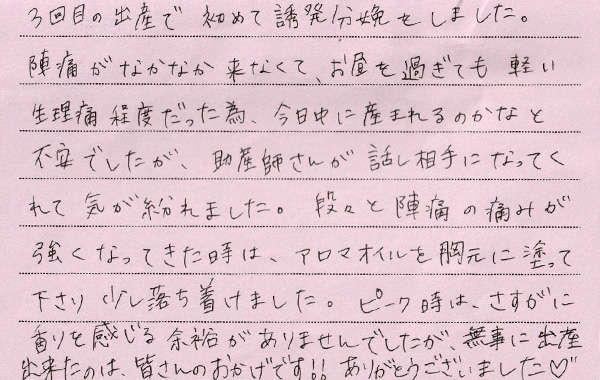 3回目の出産で 初めて誘発分娩をしました。
陣痛がなかなか来なくて、お昼を過ぎても 軽い
生理痛程度だった為、今日中に産まれるのかなと
不安でしたが、助産師さんが話し相手になってく
れて気が紛れました。段々と陣痛の痛みが
強くなってきた時は、アロマオイルを胸元に塗って
下さり少し落ち着けました。ピーク時は、さすがに
香りを感じる余裕がありませんでしたが、無事に出産
出来たのは、皆さんのおかげです!! ありがとうございました♡♡